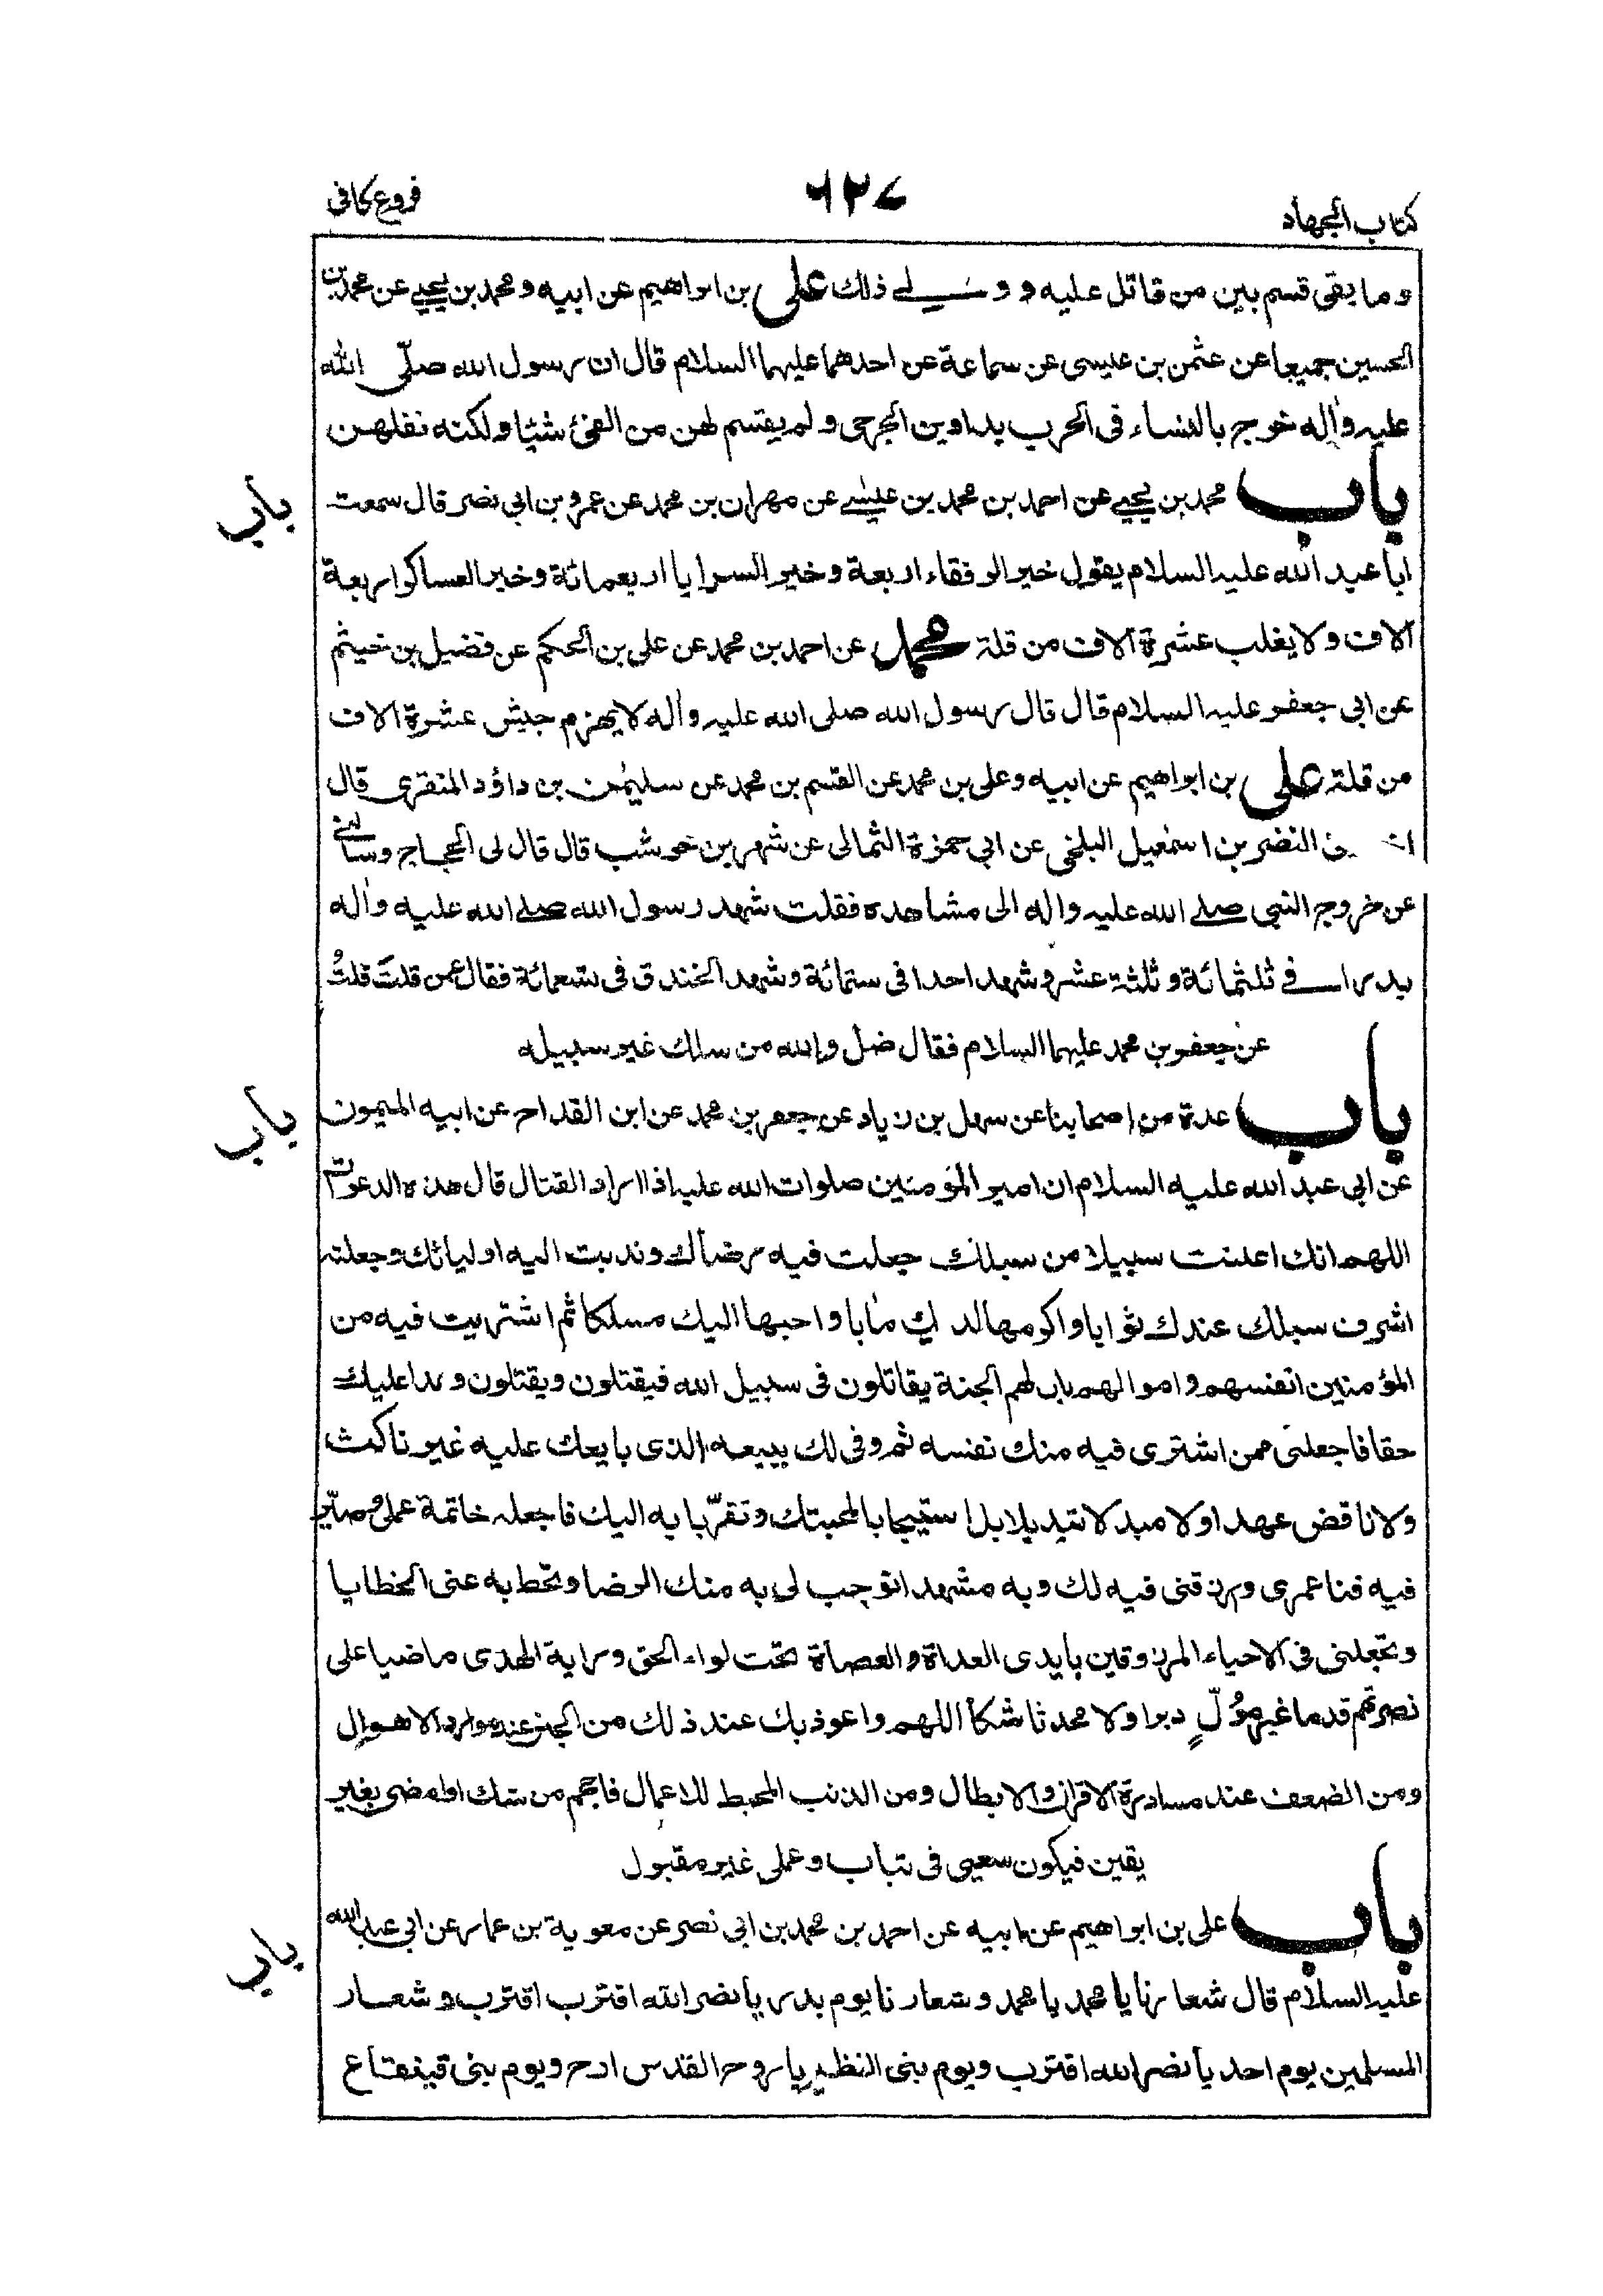 كتاب الجهاد
٦٢٧
فروع كافى
وما بقى قسم بين من قاتل عليه و ولى ذلك على بن ابراهيم عن ابيه و محمد بن يحيى عن محمد بن
الحسين جميعا عن عثمن بن عيسى عن سماعة عن احدهما عليهما السلام قال ان رسول الله صلّى الله
عليه واٰله خرج بالنساء فى الحرب يداوين الجرحى و لم يقسم لهن من الفئ شيئا و لكنه نفلهن
باب محمد بن يحيى عن احمد بن محمد بن عيسى عن مهران بن محمد عن عمرو بن ابى نصر قال سمعت
باب
ابا عبد الله عليه السلام يقول خير الرفقاء اربعة و خير السرايا اربعمائة و خير العساكر اربعة
آلاف و لا يغلب عشرة آلاف من قلة محمد عن احمد بن محمد عن على بن الحكم عن فضيل بن خيثم
عن ابى جعفر عليه السلام قال قال رسول الله صلى الله عليه واٰله لا يهزم جيش عشرة آلاف
من قلة على بن ابراهيم عن ابيه و على بن محمد عن القسم بن محمد عن سليمٰن بن داؤد المنقرى قال
النضر بن اسمٰعيل البلخى عن ابى حمزة الثمالى عن شهر بن خوشب قال قال لى الحجاج و سالنى
عن خروج النبى صلى الله عليه واٰله الى مشاهده فقلت شهد رسول الله صلى الله عليه واٰله
بدرا فى ثلثمائة و ثلثة عشر و شهد احدا فى ستمائة و شهد الخندق فى تسعمائة فقال عمن قلتَ قلتُ
عن جعفر بن محمد عليهما السلام فقال ضل و الله من سلك غير سبيله
باب عدة من اصحابنا عن سهل بن زياد عن جعفر بن محمد عن ابن القداح عن ابيه الميمون
باب
عن ابى عبد الله عليه السلام ان امير المؤمنين صلوات الله عليه اذا اراد القتال قال هذه الدعوات
اللهم انك اعلنت سبيلا من سبلك جعلت فيه رضاك و ندبت اليه اوليائك و جعلته
اشرف سبلك عندك ثوابا و اكرمها لديك ماٰبا و احبها اليك مسلكا ثم اشتريت فيه من
المؤمنين انفسهم و اموالهم بان لهم الجنة يقاتلون فى سبيل الله فيقتلون و يقتلون وعدا عليك
حقا فاجعلنى ممن اشترى فيه منك نفسه ثم وفى لك ببيعه الذى بايعك عليه غير ناكث
و لا ناقض عهدا و لا مبدلا تبديلا بل استيجابا لمحبتك و تقرّبا به اليك فاجعله خاتمة عملى و صيّر
فيه فنا عمرى و ارزقنى فيه لك و به مشهدا توجب لى به منك الرضا و تحط به عنى الخطايا
و تجعلنى فى الاحياء المرزوقين بايدى العداة و العصاة تحت لواء الحق و راية الهدى ماضيا على
نصرتهم قدما غير مُوَلٍّ دبرا و لا محدثا شكا اللهم و اعوذ بك عند ذلك من الجبن عند موارد الاهوال
و من الضعف عند مساورة الاقران و الابطال و من الذنب المحبط للاعمال فاحجم من شك او امضى بغير
يقين فيكون سعيى فى تباب و عملى غير مقبول
باب على بن ابراهيم عن ابيه عن احمد بن محمد بن ابى نصر عن معوية بن عمار عن ابى عبد الله
باب
عليه السلام قال شعارنا يا محمد يا محمد و شعارنا يوم بدر يا نصر الله اقترب اقترب و شعار
المسلمين يوم احد يا نصر الله اقترب و يوم بنى النظير يا روح القدس ارح و يوم بنى قينقاع